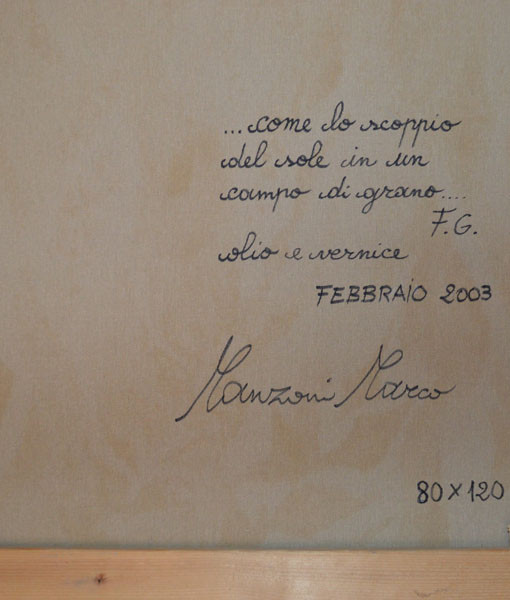 ...come lo scoppio
del sole in un
campo di grano....
F.G.
olio e vernice
FEBBRAIO 2003
Manzoni Marco
80x120